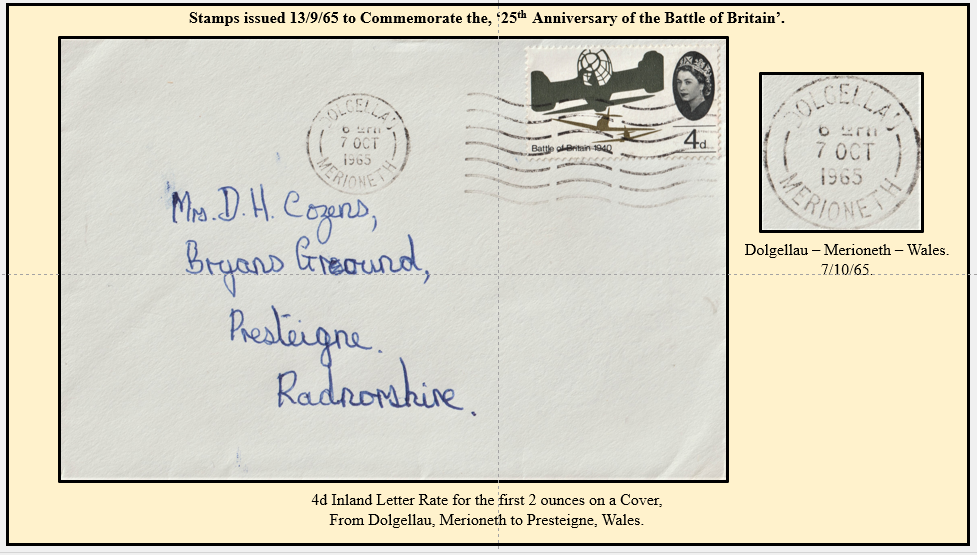 Stamps issued 13/9/65 to Commemorate the, ‘25th Anniversary of the Battle of Britain’.
DOLGELLAU
7 OCT
1965
MERIONETH
Battle of Britain 1940
4d
Mrs. D. H. Cozens,
Bryans Ground,
Presteigne.
Radnorshire.
DOLGELLAU
7 OCT
1965
MERIONETH
Dolgellau – Merioneth – Wales.
7/10/65.
4d Inland Letter Rate for the first 2 ounces on a Cover,
From Dolgellau, Merioneth to Presteigne, Wales.